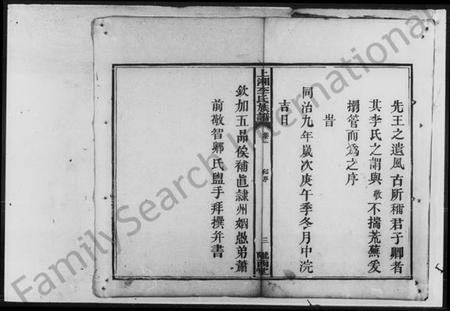 先王之遺風古所稱君子鄉者
其李氏之謂與敬不揣荒蕪爰
搦管而為之序
旹
同治九年歲次庚午季冬月中浣
吉日
上湘李氏族譜
卷一
三
隴西堂
欽加五品侯補直隸州姻愚弟蕭
前敬智鄉氏盥手拜撰并書
FamilySearch International